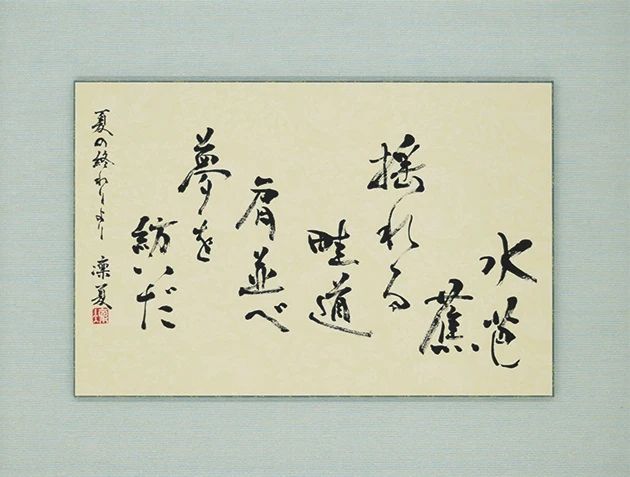 水芭
蕉
揺れる
畦道
肩並べ
夢を
紡いだ
夏の終わりより 凛夏